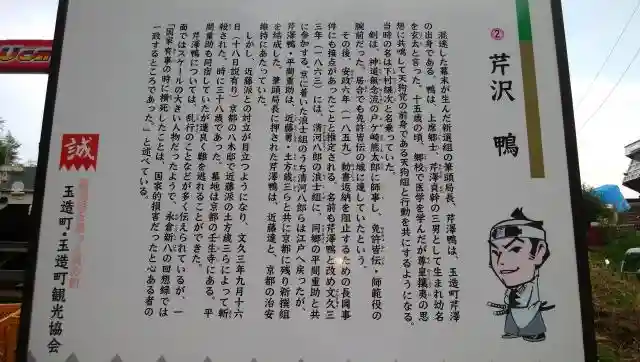 ② 芹沢 鴨
混迷した幕末が生んだ新選組の筆頭局長、芹澤鴨は、玉造町芹澤
の出身である。鴨は、上席郷士、芹澤貞幹の三男として生まれ幼名
を玄太と言った。十五歳の頃、郷校で医学を学んだが尊皇攘夷の思
想に共鳴して天狗党の前身である天狗組と行動を共にするようになる。
当時の名は下村継次と名乗っていた。
剣は、神道無念流の戸ヶ崎熊太郎に師事し、免許皆伝・師範役の
腕前だった。居合でも免許皆伝の域に達していたという。
その後、安政六年(一八五九)勅書返納を阻止するための長岡事
件にも接点があったことと推定される。名前も芹澤鴨と改め文久三
三年(一八六三)には、清河八郎の浪士組に、同郷の平間重助と共
に参加する。京に着いた浪士組のうち清河八郎らは江戸へ戻ったが、
芹澤鴨・平間重助は、近藤勇、土方歳三らと共に京都に残り新撰組
を結成した。筆頭局長に押された芹澤鴨は、近藤達と、京都の治安
維持にあたっていた。
しかし、近藤派との対立が目立つようになり、文久三年九月十六
日(十八日説有り)京都の八木邸で近藤派の土方歳三らによって斬
殺された。時に三十八歳であった。墓地は京都の壬生寺にある。平
間重助も同宿していたが運良く難を逃れることができた。
芹澤鴨については、乱行のことなどが多く伝えられているが、一
面ではスケールの大きい人物だったようで、永倉新八の回想録では
「国家有事の時に横死したことは、国家的損害だったと心ある者の
一致するところであった。」と述べている。
誠
玉造町・玉造町観光協会